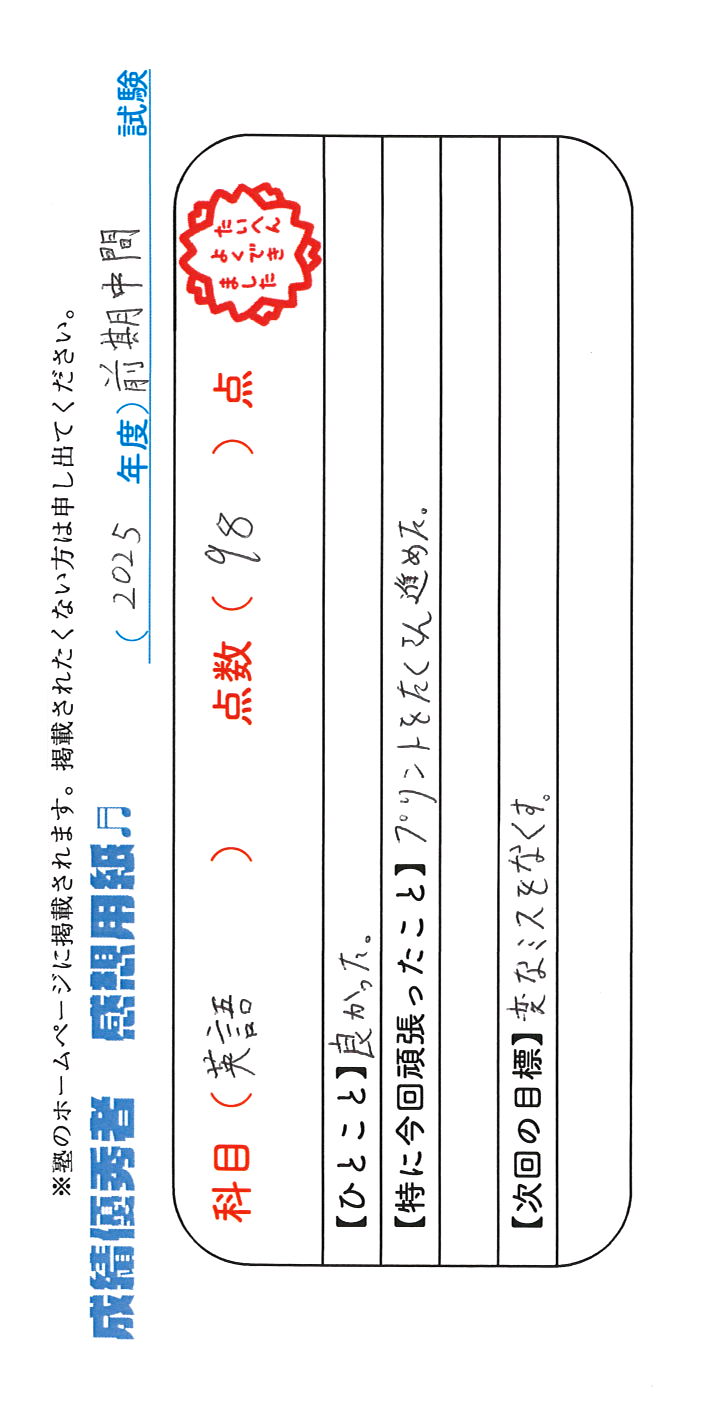 ※塾のホームページに掲載されます。掲載されたくない方は申し出てください。
成績優秀者 感想用紙♫ (2025 年度)前期中間 試験
科目(英語) 点数(98)点
たいへん
よくでき
ました
【ひとこと】良かった。
【特に今回頑張ったこと】プリントをたくさん進めた。
【次回の目標】変なミスをなくす。